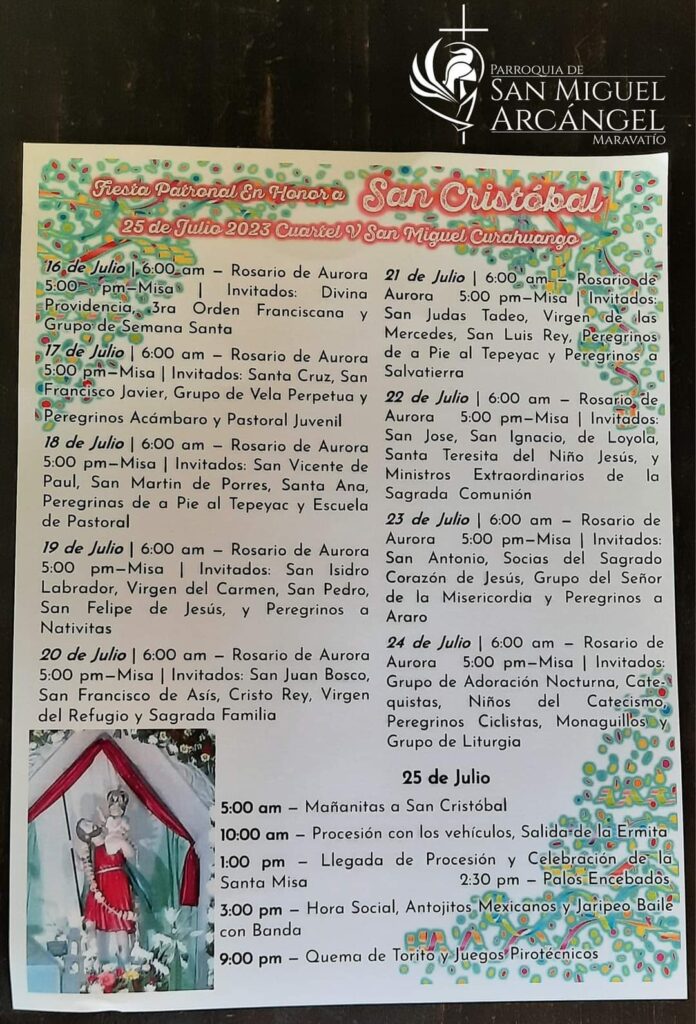 PARROQUIA DE
SAN MIGUEL
ARCÁNGEL
MARAVATÍO
Fiesta Patronal En Honor a San Cristóbal
25 de Julio 2023 Cuartel V San Miguel Curahuango
16 de Julio | 6:00 am – Rosario de Aurora
5:00 pm–Misa | Invitados: Divina
Providencia, 3ra Orden Franciscana y
Grupo de Semana Santa
17 de Julio | 6:00 am – Rosario de Aurora
5:00 pm–Misa | Invitados: Santa Cruz, San
Francisco Javier, Grupo de Vela Perpetua y
Peregrinos Acámbaro y Pastoral Juvenil
18 de Julio | 6:00 am – Rosario de Aurora
5:00 pm–Misa | Invitados: San Vicente de
Paul, San Martin de Porres, Santa Ana,
Peregrinas de a Pie al Tepeyac y Escuela
de Pastoral
19 de Julio | 6:00 am – Rosario de Aurora
5:00 pm–Misa | Invitados: San Isidro
Labrador, Virgen del Carmen, San Pedro,
San Felipe de Jesús, y Peregrinos a
Nativitas
20 de Julio | 6:00 am – Rosario de Aurora
5:00 pm–Misa | Invitados: San Juan Bosco,
San Francisco de Asís, Cristo Rey, Virgen
del Refugio y Sagrada Familia
21 de Julio | 6:00 am – Rosario de
Aurora 5:00 pm–Misa | Invitados:
San Judas Tadeo, Virgen de las
Mercedes, San Luis Rey, Peregrinos
de a Pie al Tepeyac y Peregrinos a
Salvatierra
22 de Julio | 6:00 am – Rosario de
Aurora 5:00 pm–Misa | Invitados:
San Jose, San Ignacio, de Loyola,
Santa Teresita del Niño Jesús, y
Ministros Extraordinarios de la
Sagrada Comunión
23 de Julio | 6:00 am – Rosario de
Aurora 5:00 pm–Misa | Invitados:
San Antonio, Socias del Sagrado
Corazón de Jesús, Grupo del Señor
de la Misericordia y Peregrinos a
Araro
24 de Julio | 6:00 am – Rosario de
Aurora 5:00 pm–Misa | Invitados:
Grupo de Adoración Nocturna, Cate-
quistas, Niños del Catecismo,
Peregrinos Ciclistas, Monaguillos y
Grupo de Liturgia
25 de Julio
5:00 am – Mañanitas a San Cristóbal
10:00 am – Procesión con los vehículos, Salida de la Ermita
1:00 pm – Llegada de Procesión y Celebración de la
Santa Misa 2:30 pm – Palos Encebados
3:00 pm – Hora Social, Antojitos Mexicanos y Jaripeo Baile
con Banda
9:00 pm – Quema de Torito y Juegos Pirotécnicos